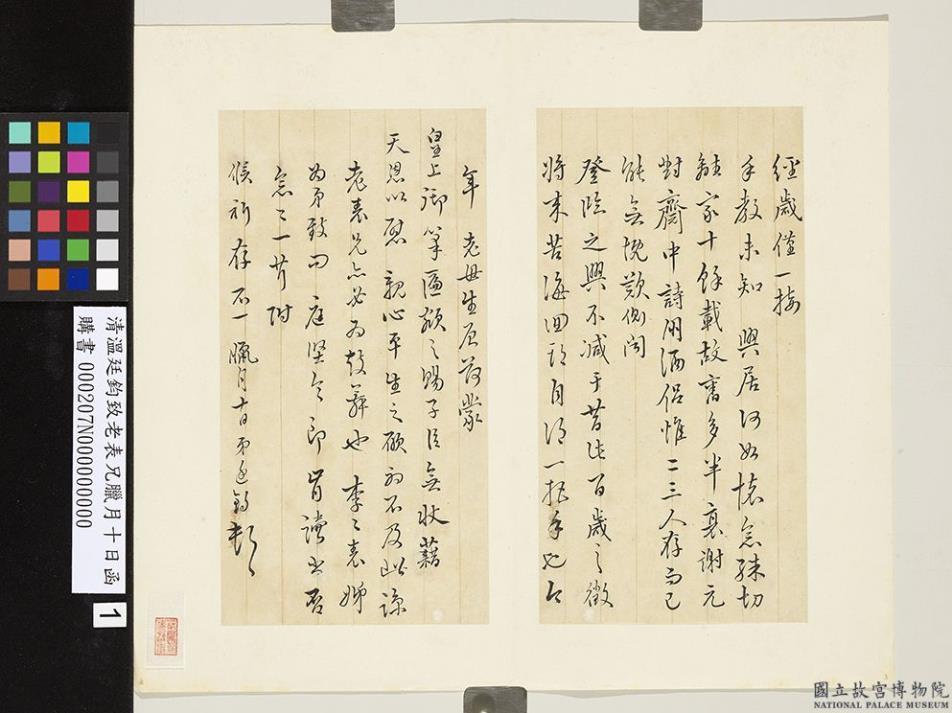 經歲僅一接
手教未知 興居何如懷念殊切
離家十餘載故舊多半衰謝元
對齋中詩朋酒侶惟二三人存而已
能無慨歎側聞
登臨之興不減于昔此百歲之徵
將來苦海回頭自得一握手也今
年 老母生辰荷蒙
皇上御筆匾額之賜子臣無狀藉
天恩以慰 親心平生之願初不及此諒
老表兄亦必為鼓舞也 李二表姊
為弟致問 庭堅令郎 肯讀書否
念之一併附
候祈存不一 臘月十日弟廷鈞頓首
清溫廷鈞致老表兄臘月十日函
購書 000207N000000000
1
國立故宮博物院
NATIONAL PALACE MUSEUM